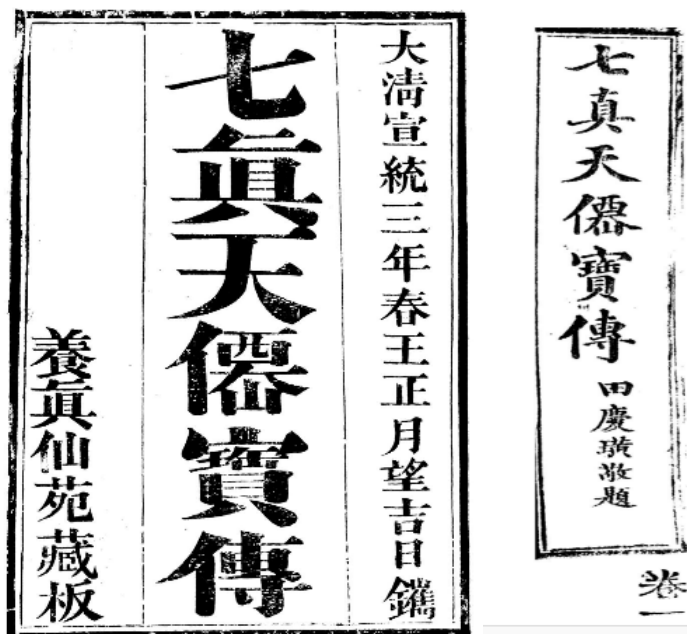 大清宣統三年春王正月望吉日鐫
七眞天僊寶傳
養眞仙苑藏板
七真天僊寶傳
田慶璜敬題
卷一